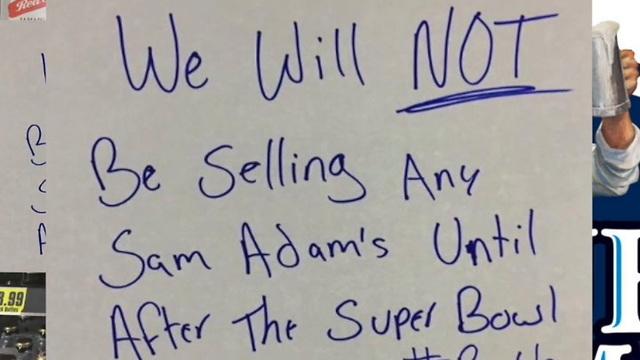 We Will NOT
Be Selling Any
Sam Adam's Until
After The Super Bowl